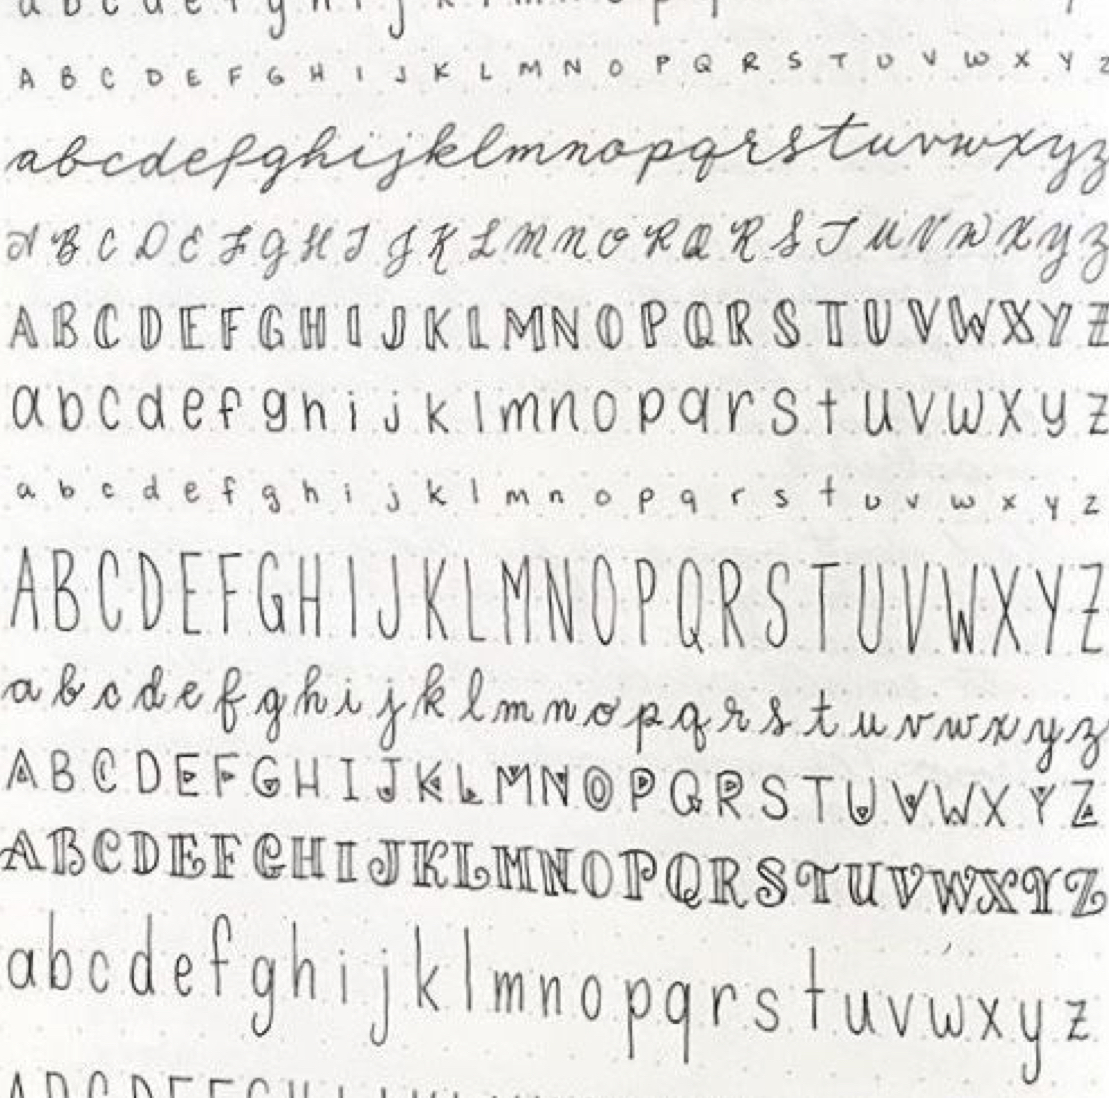 a b c d e f g h i j k l m n o p q
A B C D E F G H I J K L M N O P Q R S T U V W X Y Z
abcdefghijklmnopqrstuvwxyz
A B C D E F G H I J K L M N O P Q R S T U V W X Y Z
A B C D E F G H I J K L M N O P Q R S T U V W X Y Z
a b c d e f g h i j k l m n o p q r s t u v w x y z
a b c d e f g h i j k l m n o p q r s t u v w x y z
A B C D E F G H I J K L M N O P Q R S T U V W X Y Z
a b c d e f g h i j k l m n o p q r s t u v w x y z
A B C D E F G H I J K L M N O P Q R S T U V W X Y Z
A B C D E F G H I J K L M N O P Q R S T U V W X Y Z
a b c d e f g h i j k l m n o p q r s t u v w x y z
A B C D E F G H I J K L